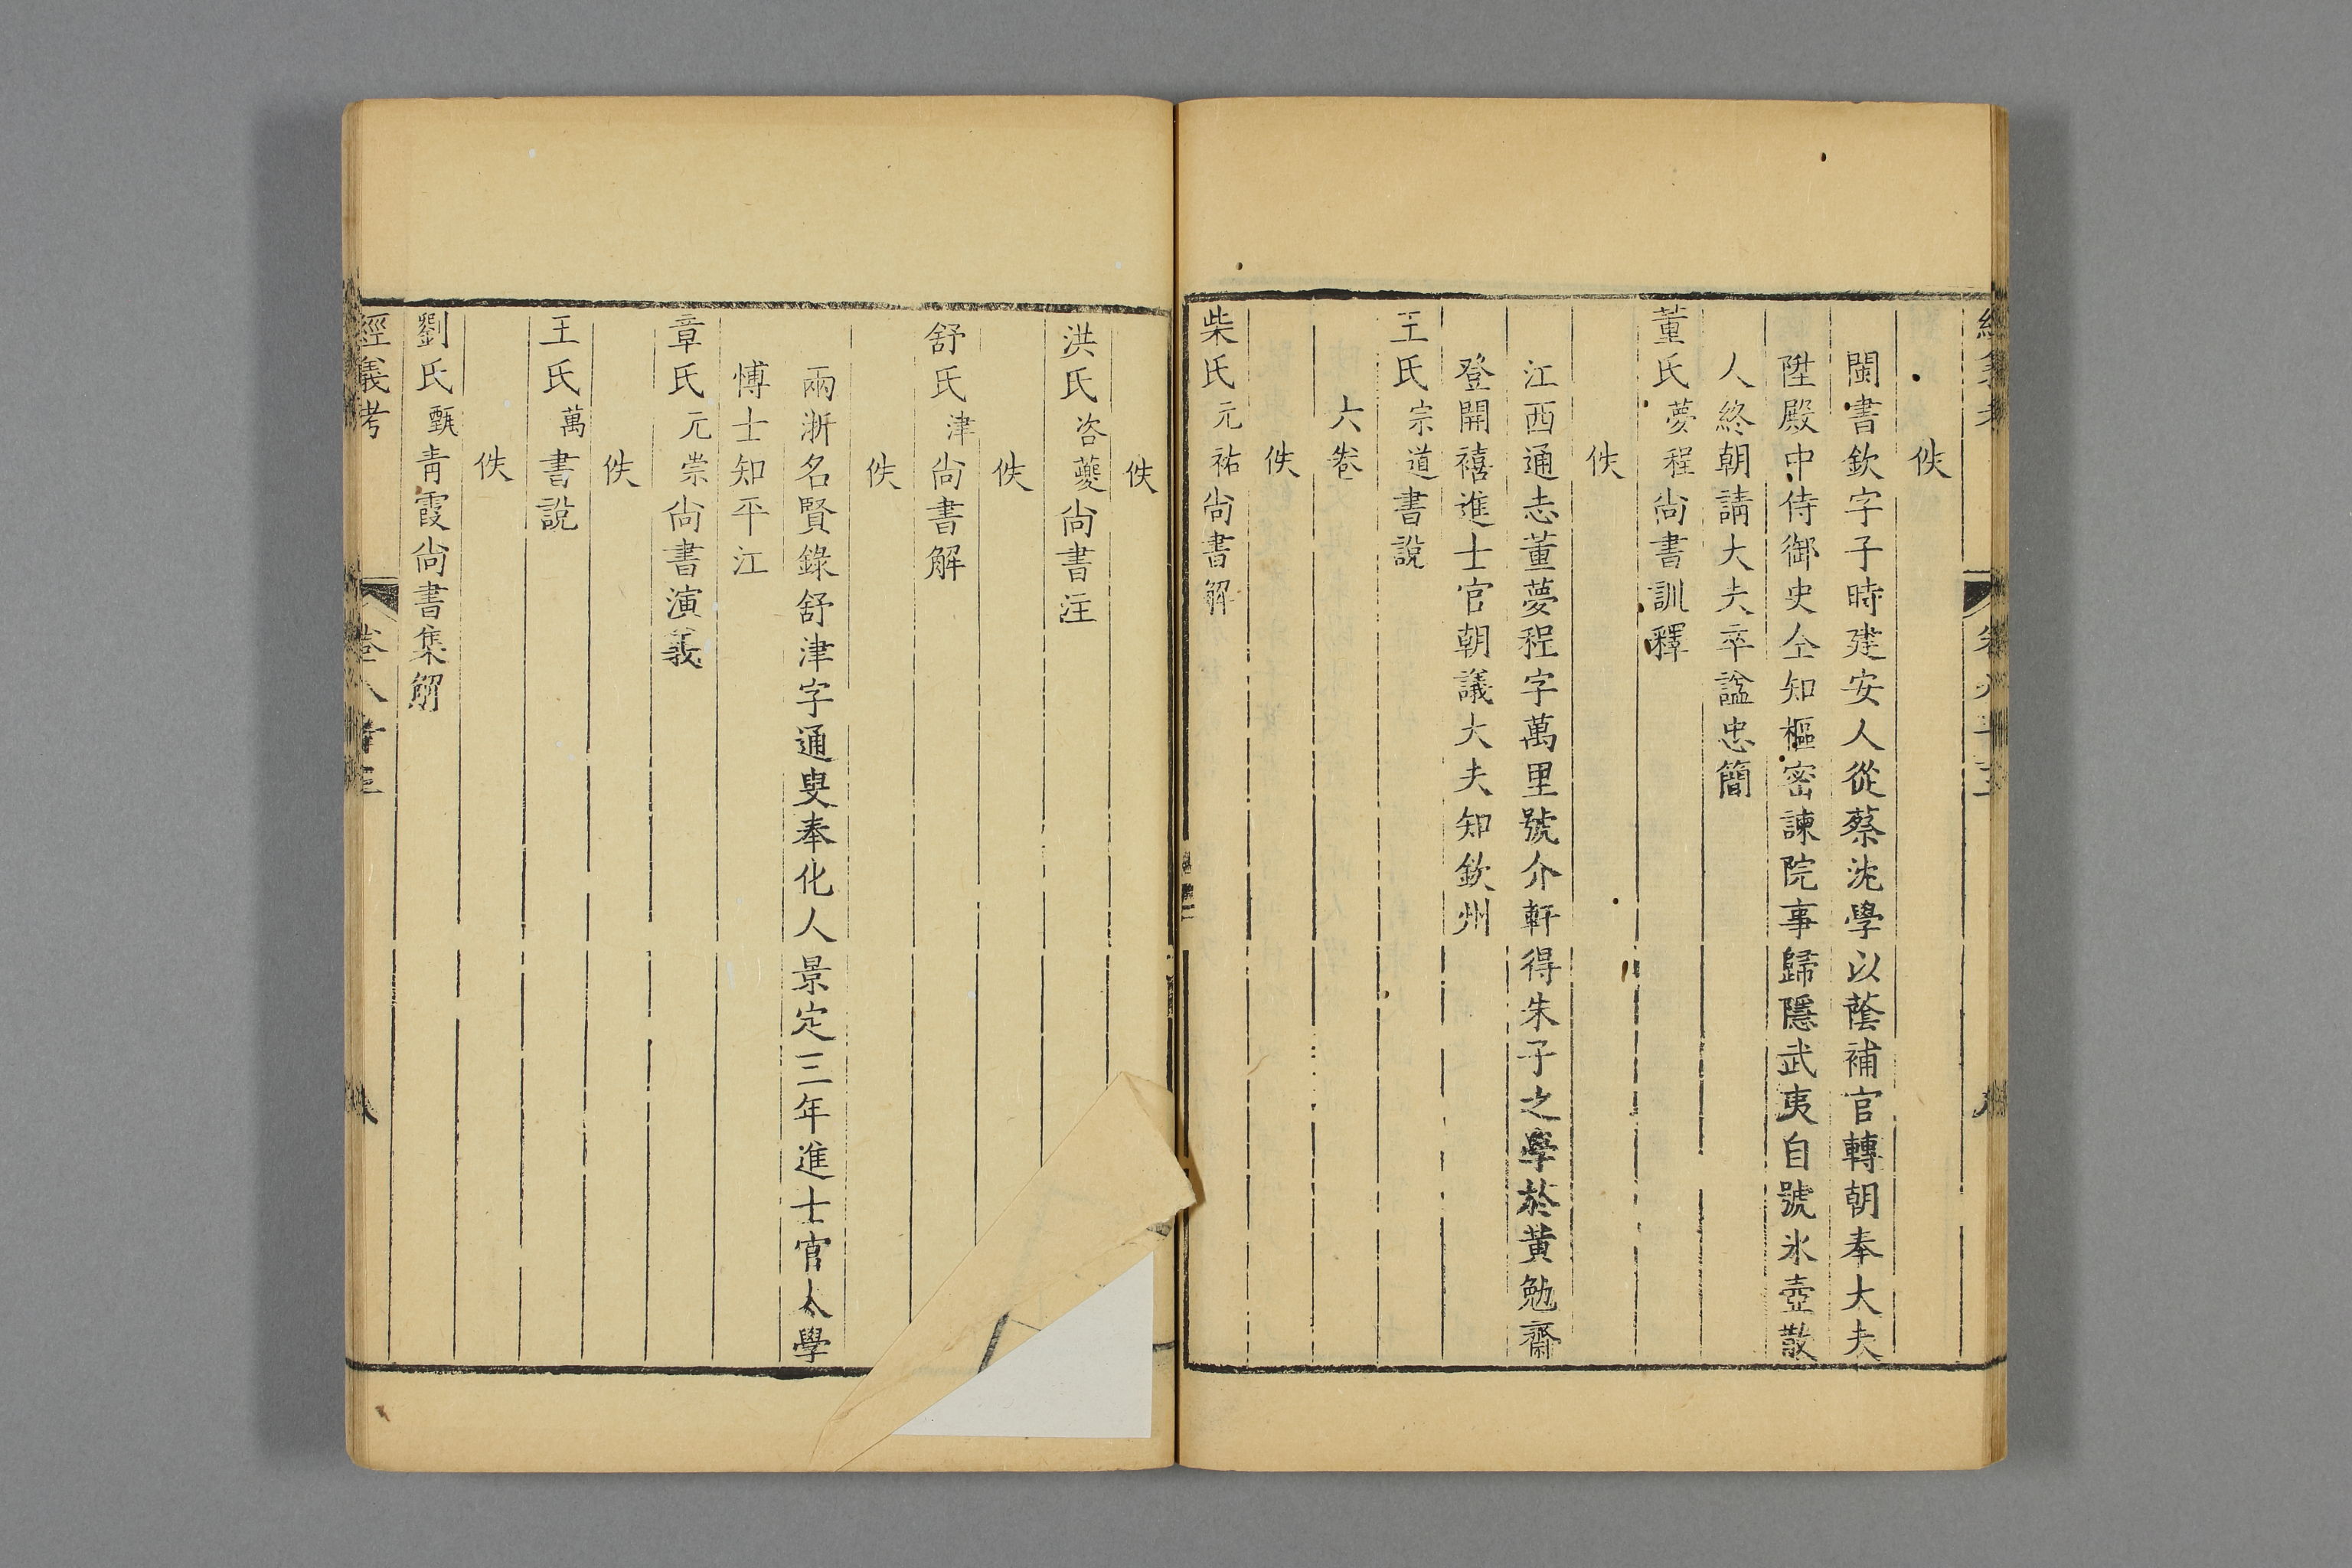 佚
閩書欽字子時建安人從蔡沈學以蔭補官轉朝奉大夫
陞殿中侍御史仝知樞密諫院事歸隱武夷自號氷壺散
人終朝請大夫卒諡忠簡
董氏夢程尚書訓釋
佚
江西通志董夢程字萬里號介軒得朱子之學於黄勉齋
登開禧進士官朝議大夫知欽州
王氏宗道書說
六卷
佚
柴氏元祐尚書解
佚
洪氏咨夔尚書注
佚
舒氏津尚書解
佚
兩浙名賢錄舒津字通叟奉化人景定三年進士官太學
愽士知平江
章氏元崇尚書演義
佚
王氏萬書說
佚
劉氏甄青霞尚書集解
經義考 卷八十三 八